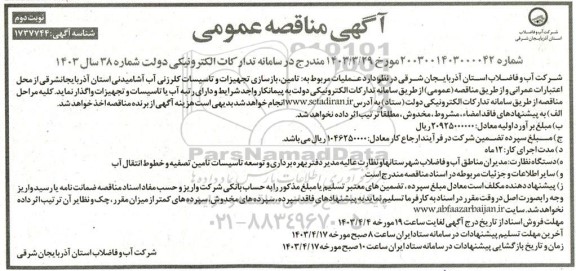 نوبت دوم
شناسه آگهی: ۱۷۳۷۷۴۴
آگهی مناقصه عمومی
شرکت آب و فاضلاب
استان آذربایجان شرقی
شماره ۲۰۰۳۰۰۱۴۰۳۰۰۰۰۴۲ مورخ ۱۴۰۳/۳/۲۹ مندرج در سامانه تدارکات الکترونیکی دولت شماره ۳۸ سال ۱۴۰۳
شرکت آب و فاضلاب استان آذربایجان شرقی در نظر دارد عملیات مربوط به: تامین، بازسازی تجهیزات و تاسیسات کلرزنی آب آشامیدنی استان آذربایجان‌شرقی از محل
اعتبارات عمرانی و از طریق مناقصه (عمومی) از طریق سامانه تدارکات الکترونیکی دولت به پیمانکار واجد شرایط و دارای رتبه آب یا تاسیسات و تجهیزات واگذار نماید. کلیه مراحل
مناقصه از طریق سامانه تدارکات الکترونیکی دولت (ستاد) به آدرس www.setadiran.ir انجام خواهد شد. بدیهی است هزینه آگهی از برنده مناقصه اخذ خواهد شد.
الف) به پیشنهادهای فاقد امضاء، مشروط، مخدوش، مطلقا ترتیب اثر داده نخواهد شد.
ب) مبلغ برآورد اولیه معادل: ۲۰۹۲۵۰۰۰۰۰۰ ریال می‌باشد.
ج) مبلغ سپرده تضمین شرکت در فرآیند ارجاع کار معادل: ۱۰۴۶۲۵۰۰۰۰ ریال می‌باشد.
د) مدت اجرای کار: ۱۲ ماه
ه) دستگاه نظارت: مدیران مناطق آب و فاضلاب شهرستانها و نظارت عالیه مدیر دفتر بهره‌برداری و توسعه تاسیسات تامین تصفیه و خطوط انتقال آب
و) سایر اطلاعات و جزئیات مربوطه در اسناد مناقصه مندرج است.
ز) پیشنهاد دهنده مکلف است معادل مبلغ سپرده، تضمین های معتبر تسلیم یا مبلغ مذکور را به حساب بانکی شرکت واریز و حسب مفاد اسناد مناقصه ضمانت نامه یا رسید واریز
وجه را بصورت اصل در وقت مقرر در پاکت سربسته به کارفرما تسلیم نماید به پیشنهادهای فاقد سپرده، سپرده‌های مخدوش، سپرده‌های کمتر از میزان مقرر، چک و نظایر آن ترتیب اثر داده
نخواهد شد. سایت www.abfaazarbaijan.ir
مهلت فروش اسناد از تاریخ درج آگهی لغایت ساعت ۱۹ مورخه ۱۴۰۳/۴/۴
آخرین مهلت تسلیم پیشنهادات در سامانه ستاد ایران ساعت ۸ صبح مورخه ۱۴۰۳/۴/۱۷
زمان و تاریخ بازگشایی پیشنهادات در سامانه ستاد ایران ساعت ۱۰ صبح مورخه ۱۴۰۳/۴/۱۷
شرکت آب و فاضلاب آذربایجان شرقی
ParsNamadData
۰۲۱-۸۸۳۴۹۶۷۰